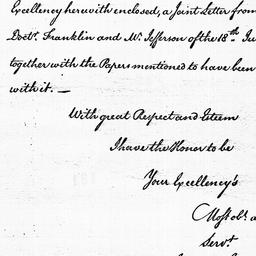 Excellency herewith enclosed, a Joint Letter from
Doctr. Franklin and Mr. Jefferson of the 18th
together with the Papers mentioned to have been
with it. —
With great Respect and Esteem
I have the Honor to be
Your Excellency's
Most obt.
Servt.